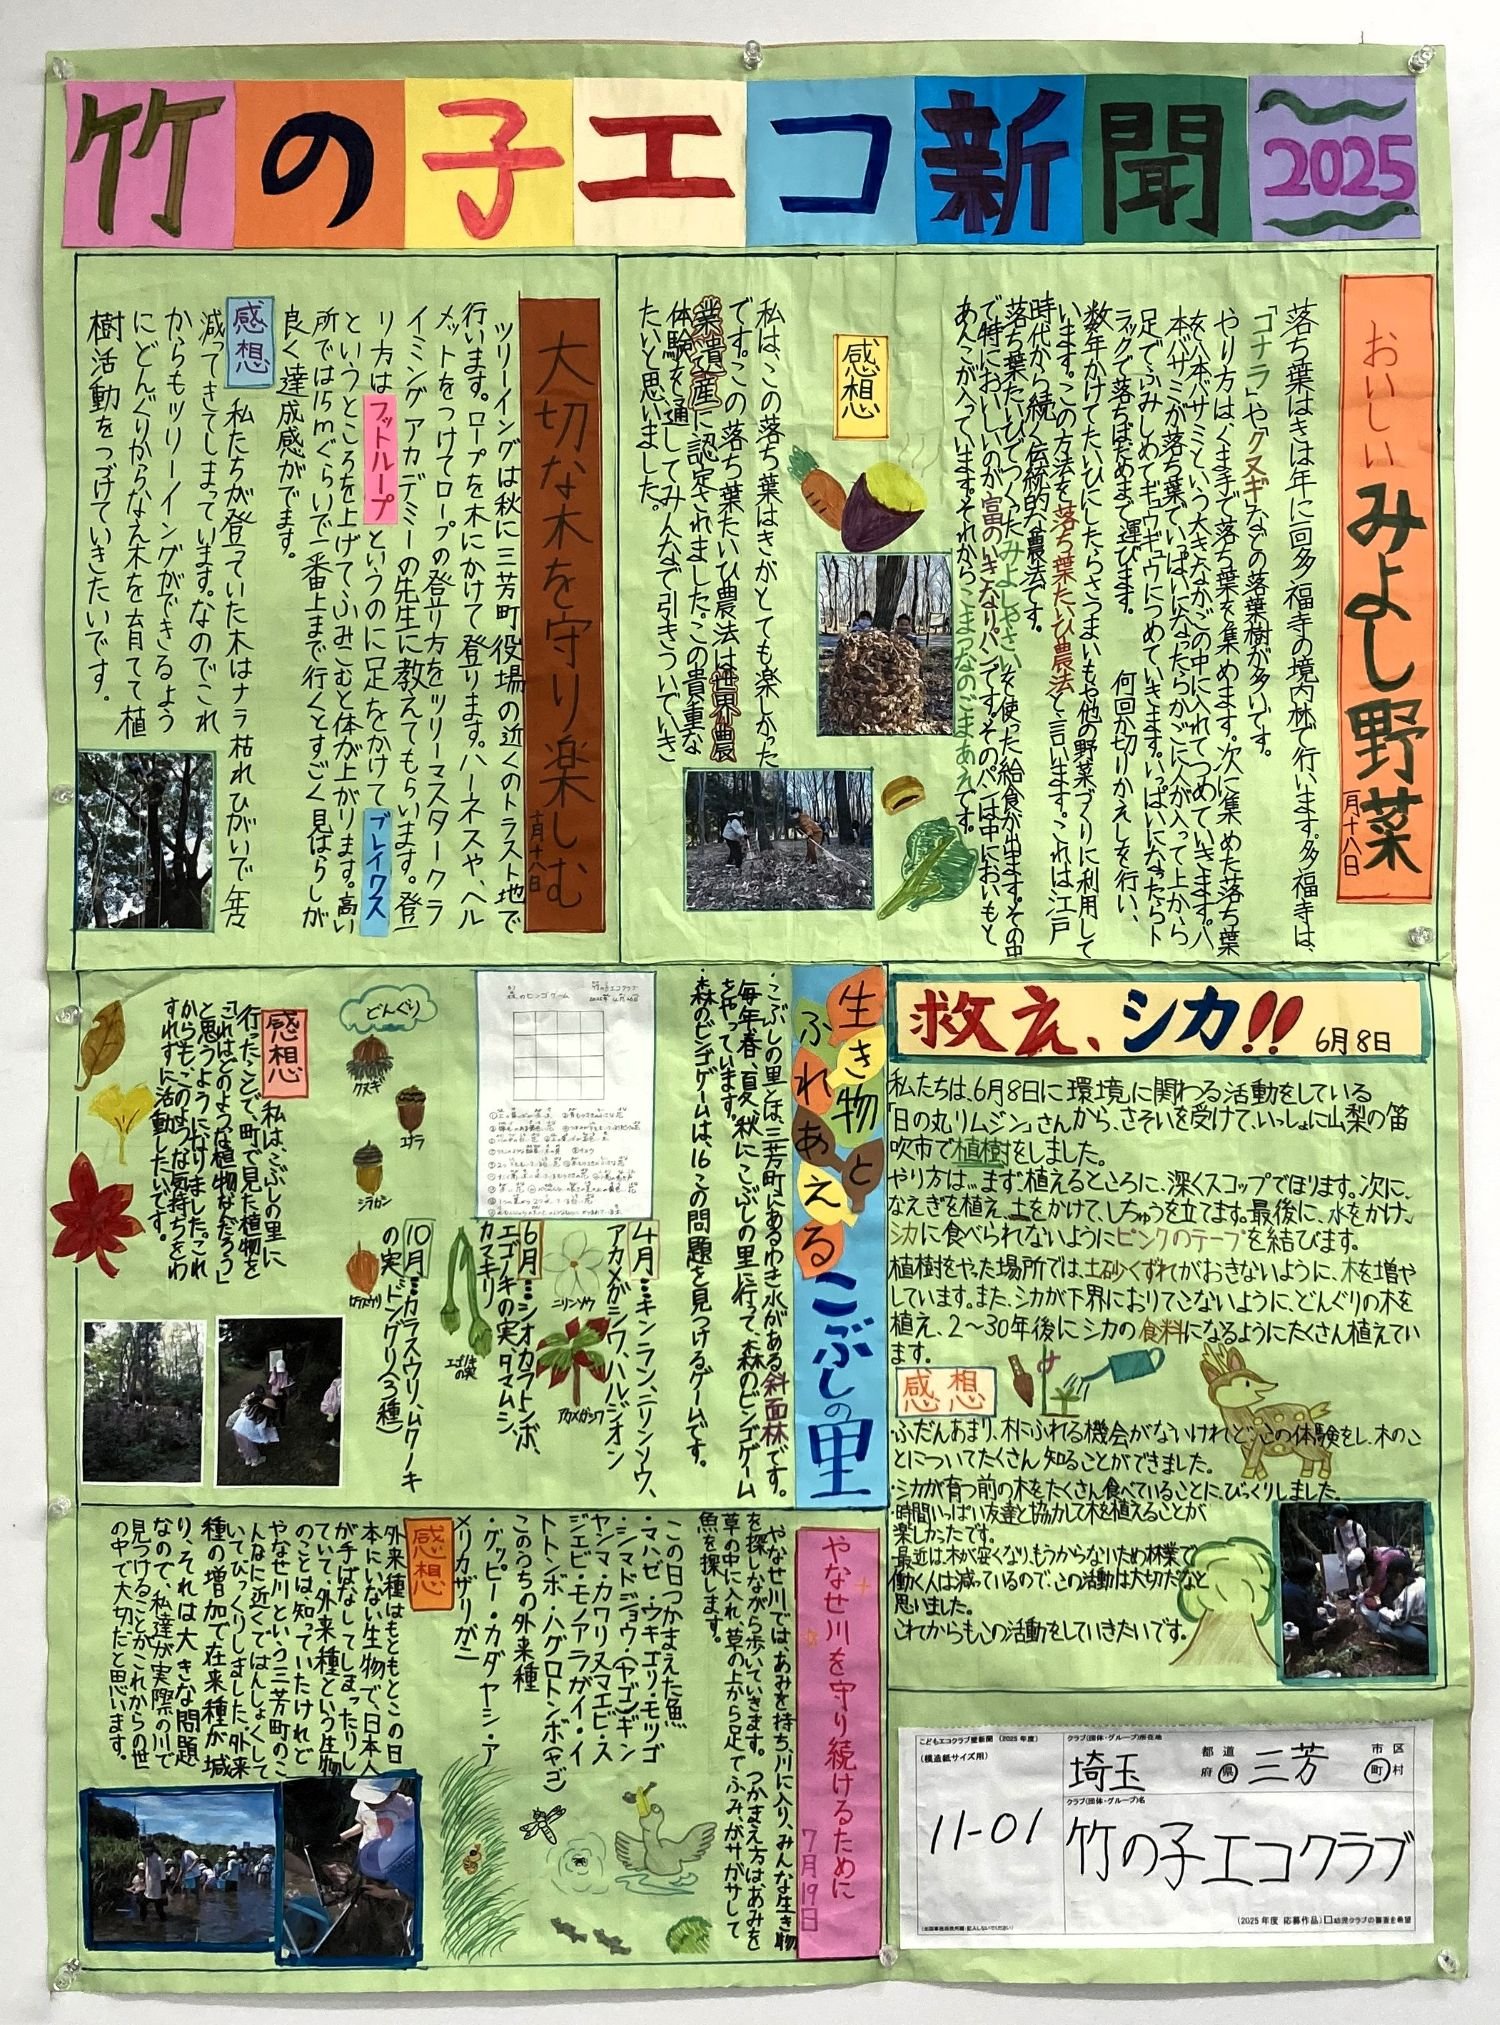 竹の子エコ新聞
2025
おいしいみよし野菜
一月十八日
落ち葉はきは年に一回多福寺の境内林で行います。多福寺は、
「コナラ」や「クヌギ」などの落葉樹が多いです。
やり方は、くま手で落ち葉を集めます。次に集めた落ち葉
を八本バサミという大きなかごの中に入れてつめていきます。八
本バサミが落ち葉でいっぱいになったらかごに人が入って上から
足でふみしめてギュウギュウにつめていきます。いっぱいになったらト
ラックで落ちばだめまで運びます。 何回か切りかえしを行い、
数年かけてたいひにしたらさつまいもや他の野菜づくりに利用して
います。この方法を落ち葉たいひ農法と言います。これは江戸
時代から続く伝統的な農法です。
落ち葉たいひでつくったみよしやさいを使った給食が出ます。その中
で特においしいのが富のいきなりパンです。そのパンは中においもと
あんこが入っています。それからこまつなのごまあえです。
感想
私は、この落ち葉はきがとても楽しかった
です。この落ち葉たいひ農法は世界農
業遺産に認定されました。この貴重な
体験を通してみんなで引きついでいき
たいと思いました。
大切な木を守り楽しむ
十月十八日
ツリーイングは秋に三芳町役場の近くのトラスト地で
行います。ロープを木にかけて登ります。ハーネスや、ヘル
メットをつけてロープの登り方をツリーマスタークラ
イミングアカデミーの先生に教えてもらいます。登
り方はフットループというのに足をかけてブレイクス
というところを上げてふみこむと体が上がります。高い
所では15mぐらいで一番上まで行くとすごく見はらしが
良く達成感がでます。
感想
私たちが登っていた木はナラ枯れひがいで年々
減ってきてしまっています。なのでこれ
からもツリーイングができるよう
にどんぐりからなえ木を育てて植
樹活動をつづけていきたいです。
救え、シカ!! 6月8日
私たちは、6月8日に環境に関わる活動をしている
「日の丸リムジン」さんから、さそいを受けて、いっしょに山梨の笛
吹市で植樹をしました。
やり方は、まず植えるところに、深くスコップでほります。次に、
なえぎを植え、土をかけて、しちゅうを立てます。最後に、水をかけ、
シカに食べられないようにピンクのテープを結びます。
植樹をやった場所では、土砂くずれがおきないように、木を増や
しています。また、シカが下界におりてこないように、どんぐりの木を
植え、2~30年後にシカの食料になるようにたくさん植えてい
ます。
感想
・ふだんあまり、木にふれる機会がないけれど、この体験をし、木のこ
とについてたくさん知ることができました。
・シカが育つ前の木をたくさん食べていることに、びっくりしました。
・時間いっぱい友達と協力して木を植えることが
楽しかったです。
最近は木が安くなり、もうからないため林業で
働く人は減っているので、この活動は大切だなと
思いました。
これからもこの活動をしていきたいです。
生き物とふれあえるこぶしの里
・こぶしの里とは、三芳町にあるわき水がある斜面林です。
毎年春、夏、秋にこぶしの里に行って、森のビンゴゲーム
をやっています。
・森のビンゴゲームは、16この問題を見つけるゲームです。
4月…キンラン、ニリンソウ、
アカメガシワ、ハルジオン
6月…シオカラトンボ、
エゴノキの実、タマムシ、
カマキリ
10月…カラスウリ、ムクノキ
の実、ドングリ(3種)
森のビンゴゲーム
竹の子エコクラブ
ニリンソウ
アカメガシワ
エゴノキの実
カラスウリ
どんぐり
クヌギ
コナラ
シラカシ
感想
私は、こぶしの里に
行ったことで、町で見た植物を
「これはどのような植物なんだろう」
と思うようになりました。これ
からも、このような気持ちをわ
すれずに活動したいです。
やなせ川を守り続けるために
7月19日
やなせ川では、あみを持ち、川に入り、みんな生き物
を探しながら歩いていきます。つかまえ方は、あみを
草の中に入れ、草の上から足でふみ、ガサガサして
魚を探します。
この日つかまえた魚
・マハゼ・ウキゴリ・モツゴ
・シマドジョウ・(ヤゴ)ギン
ヤンマ・カワリヌマエビ・ス
ジエビ・モノアラガイ・イ
トトンボ・ハグロトンボ(ヤゴ)
このうちの外来種
・グッピー・カダヤシ・ア
メリカザリガニ
感想
外来種はもともとこの日
本にいない生物で、日本人
が手ばなしてしまったりし
ていて、外来種という生物
のことは知っていたけれど
やなせ川という三芳町のこ
んなに近くではんしょくして
いてびっくりしました。外来
種の増加で在来種が減
り、それは大きな問題
なので、私達が実際の川で
見つけることがこれからの世
の中で大切だと思います。
こどもエコクラブ壁新聞 (2025年度)
(模造紙サイズ用)
11-01
(全国事務局使用欄・記入しないでください)
クラブ(団体・グループ)所在地
埼玉 都道府県 三芳 市区町村
クラブ(団体・グループ)名
竹の子エコクラブ
(2025年度 応募作品) □幼児クラブの審査を希望